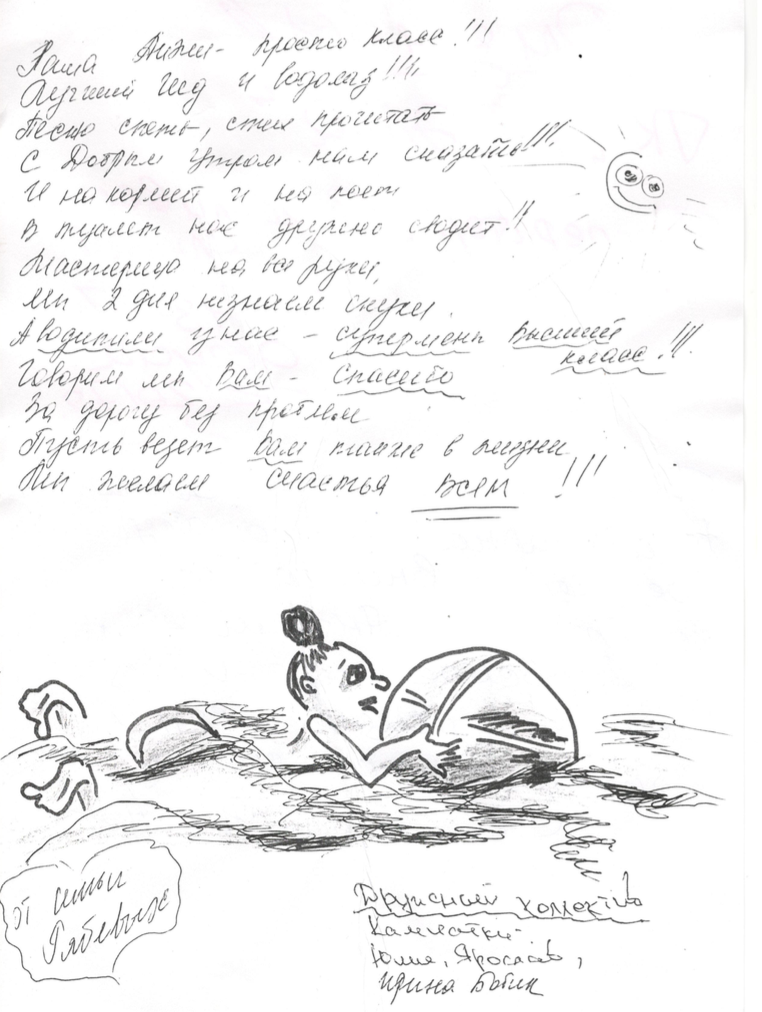 Наша Анжи - просто класс!!!
Лучший Гид и водолаз!!!
Песню спеть, стих прочитать
С Добрым Утром нам сказать!!!
И накормит и на поит
В туалет нас дружно сводит!!
Мастерица на все руки,
Мы 2 дня незнаем скуки.
А водители у нас - супермены Высший
класс!!!
Говорим мы Вам - Спасибо
За дорогу без проблем
Пусть везет Вам также в жизни
Мы желаем счастья Всем!!!
от семьи
Дружный коллектив
Камчатки -
Юлия, Ярослав,
Ирина